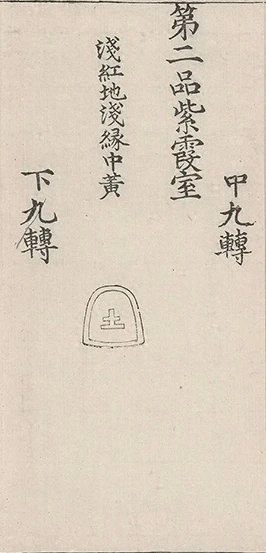 第二品紫霞室
甲九轉
淺紅地淺緣中黃
下九轉
土